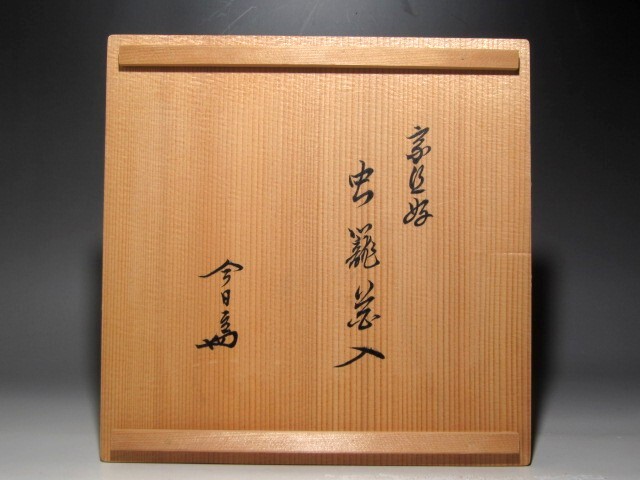 宗旦好
虫籠花入
今日庵